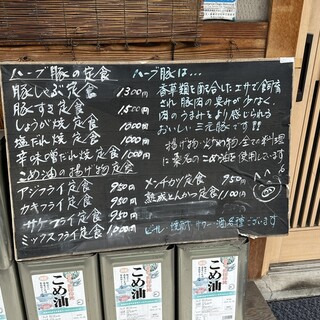 ハーブ豚の定食
豚しゃぶ定食 1300円
豚すき定食 1500円
しょうが焼定食 1000円
塩だれ焼定食 1000円
辛味噌だれ焼定食 1000円
こめ油の揚げ物定食
アジフライ定食 950円
カキフライ定食 950円
サケフライ定食 950円
ミックスフライ定食 1,000円
ハーブ豚は…
香草類を配合したエサで飼育
され豚肉の臭みが少なく、
肉のうまみをより感じられる
おいしい三元豚です!!
揚げ物、炒め物、全ての料理
に築野のこめ油を使用しています
メンチカツ定食 950円
熟成とんかつ定食 1,000円
ビール・焼酎・サワー・酒各種ございます
こめ油
こめ油
こめ油